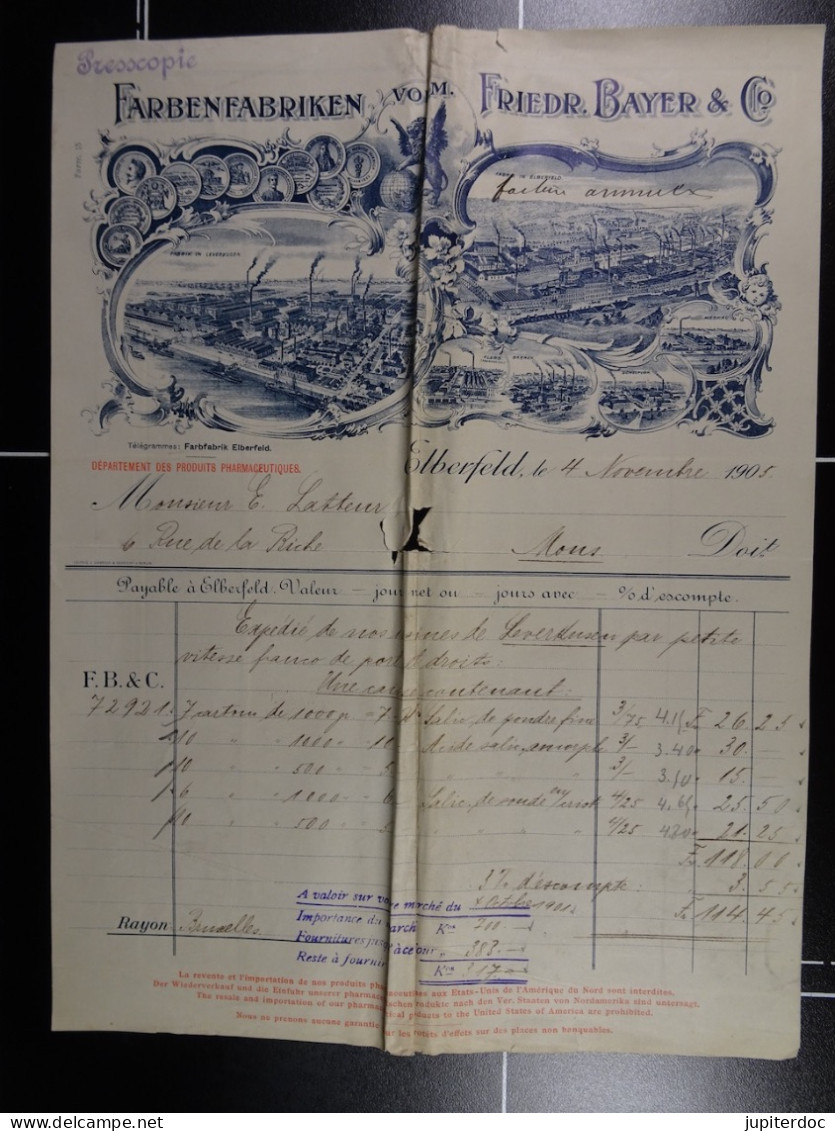 Presscopie
FARBENFABRIKEN VOM. FRIEDR. BAYER & Co
FABRIK IN ELBERFELD.
facture annulée
FABRIK IN LEVERKUSEN
Télégrammes: Farbfabrik Elberfeld.
DÉPARTEMENT DES PRODUITS PHARMACEUTIQUES.
Elberfeld, le 4 Novembre 1905.
Monsieur E. Latteur
6 Rue de la Biche Mons Doit
Payable à Elberfeld. Valeur — jours net ou — jours avec — % d'escompte.
Expédié de nos usines de Leverkusen par petite
vitesse franco de port & droits:
F. B. & C. Une caisse contenant:
72921. 7 cartons de 1000 gr = 7 Salic. de poudre fine 3/75 4.15 Fr 26.25
10 " " 1000 " = 10 Acide salic. amorphe 3/– 3.40 30.—
10 " " 500 " = 5 " " " 3/– 3.50 15.—
6 " " 1000 " = 6 Salic. de soude 4/25 4.65 25.50
10 " " 500 " = 5 " " " 4/25 21.25
Fr 118.00
3% d'escompte: 3.55
Fr 114.45
A valoir sur votre marché du Octobre
Importance du march Ko 700.—
Fournitures jusqu'à ce jour " 383.—
Reste à fournir Ko 317.—
Rayon: Bruxelles.
La revente et l'importation de nos produits pharmaceutiques aux Etats-Unis de l'Amérique du Nord sont interdites.
Der Wiederverkauf und die Einfuhr unserer pharmaceutischen Produkte nach den Ver. Staaten von Nordamerika sind untersagt.
The resale and importation of our pharmaceutical products to the United States of America are prohibited.
Nous ne prenons aucune garantie pour les retards d'effets sur des places non banquables.
jupiterdoc